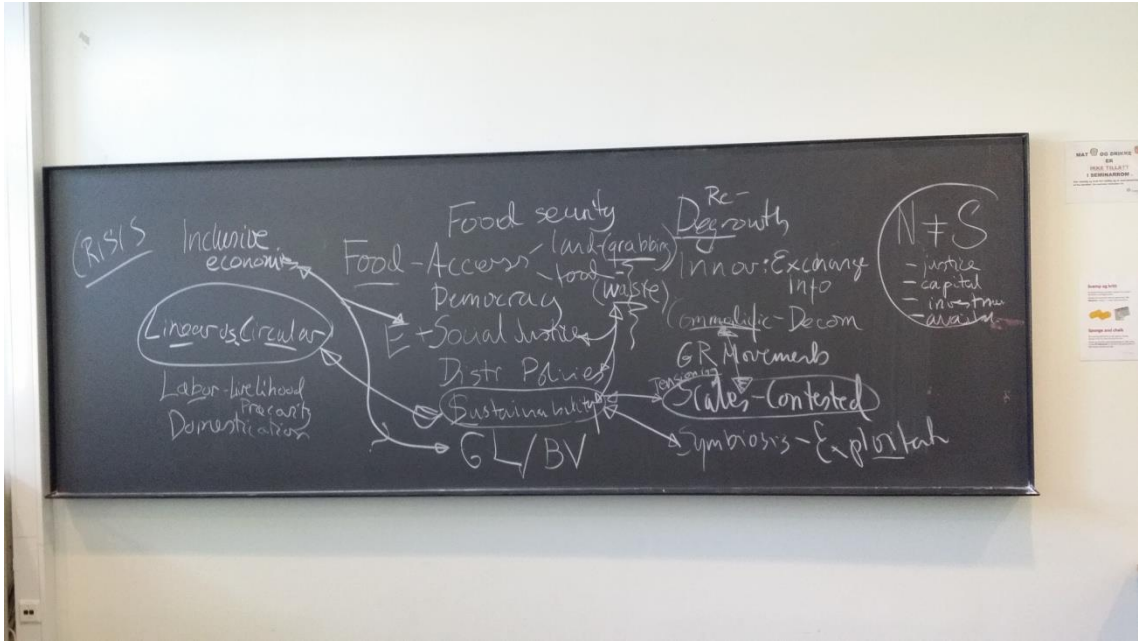 CRISIS
Inclusive
economies
Linear vs. Circular
Labor-livelihood
Precarity
Domestication
Food security
Food - Access - land (grabbing)
- food (waste)
Democracy
E + Social Justice
Distr Policies
Sustainability
GL/BV
Re-
Degrowth
Innov: Exchange
Info
Commodific - Decom
GR Movements
Tensioning
Scales - Contested
Symbiosis - Exploitat
N ≠ S
- justice
- capital
- investm
MAT OG DRIKKE
ER
IKKE TILLATT
I SEMINARROM.
Svamp og kritt
Sponge and chalk